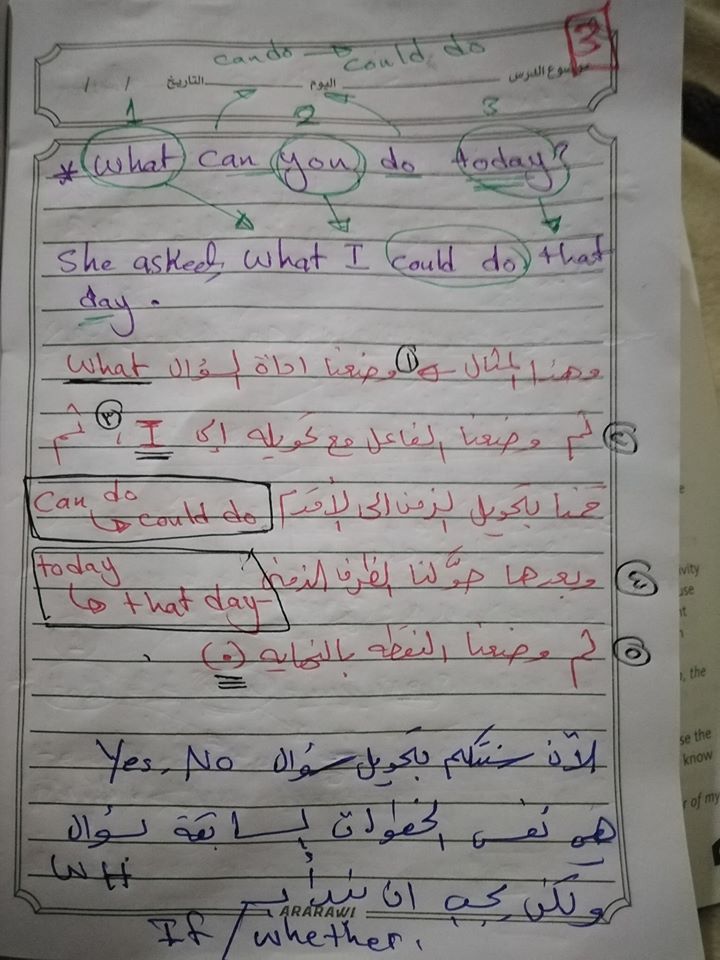 can do → could do
3
موضوع الدرس اليوم التاريخ / /
1 2 3
* What can you do today?
She asked, what I could do that
day.
وهنا المثال ① وضعنا اداة السؤال What
② ثم وضعنا الفاعل مع تحويله الى I ، ③ ثم
قمنا بتحويل الزمن الى الأقدم
can do
↳ could do
④ وبعدها حوّلنا الظرف الزمني
today
↳ that day
⑤ ثم وضعنا النقطه بالنهايه (.)
الآن سنتكلم بتحويل سؤال Yes, No
هي نفس الخطوات السابقة لسؤال
WH
ولكن يجب ان نبدأ بـ
ARARAWI
If / whether.
, the
se the
know
r of my